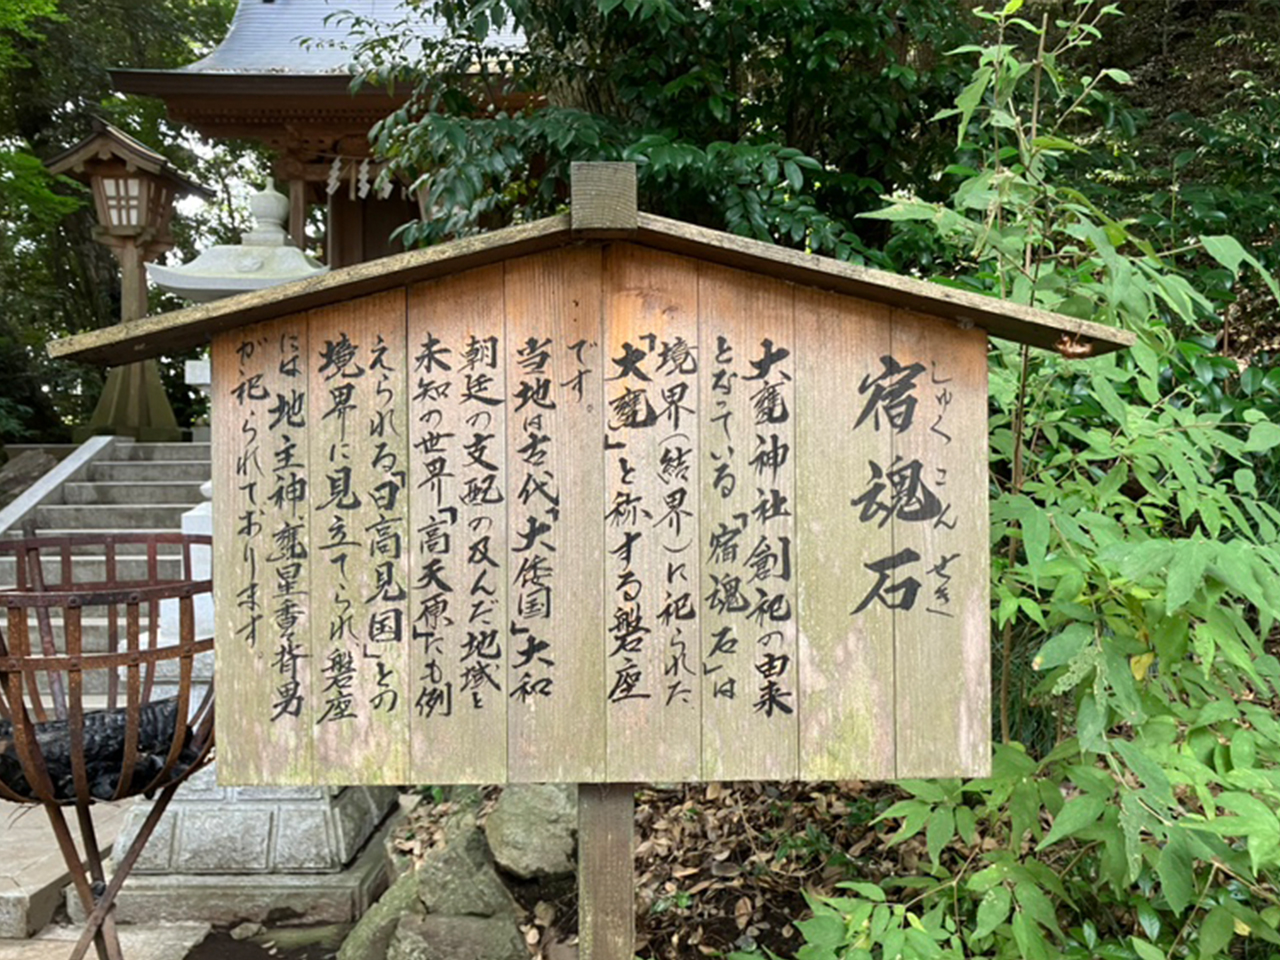 宿魂石
しゅくこんせき
大甕神社創祀の由来
となっている「宿魂石」は
境界(結界)に祀られた
「大甕」と称する磐座
です。
当地は古代「大倭国」大和
朝廷の支配の及んだ地域と
未知の世界「高天原」にも例
えられる「日高見国」との
境界に見立てられ、磐座
には地主神甕星香々背男
が祀られております。